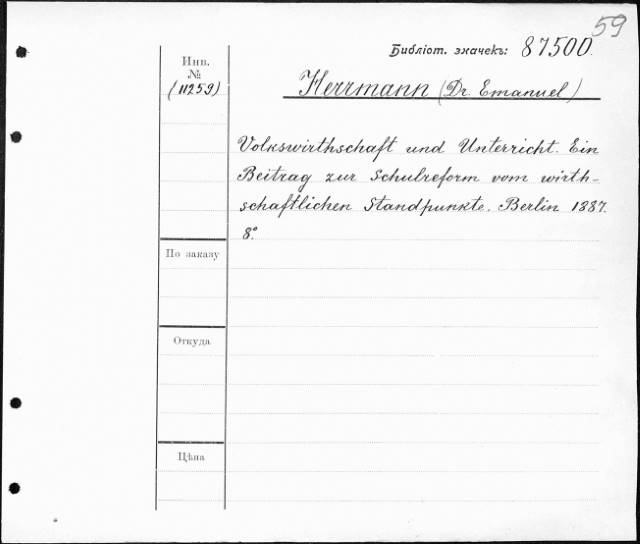 59
Библіот. значекъ: 87500.
Инв.
№
(11259)
Herrmann (Dr. Emanuel)
Volkswirthschaft und Unterricht. Ein
Beitrag zur Schulreform vom wirth-
schaftlichen Standpunkte. Berlin 1887.
8°.
По заказу
Откуда
Цѣна